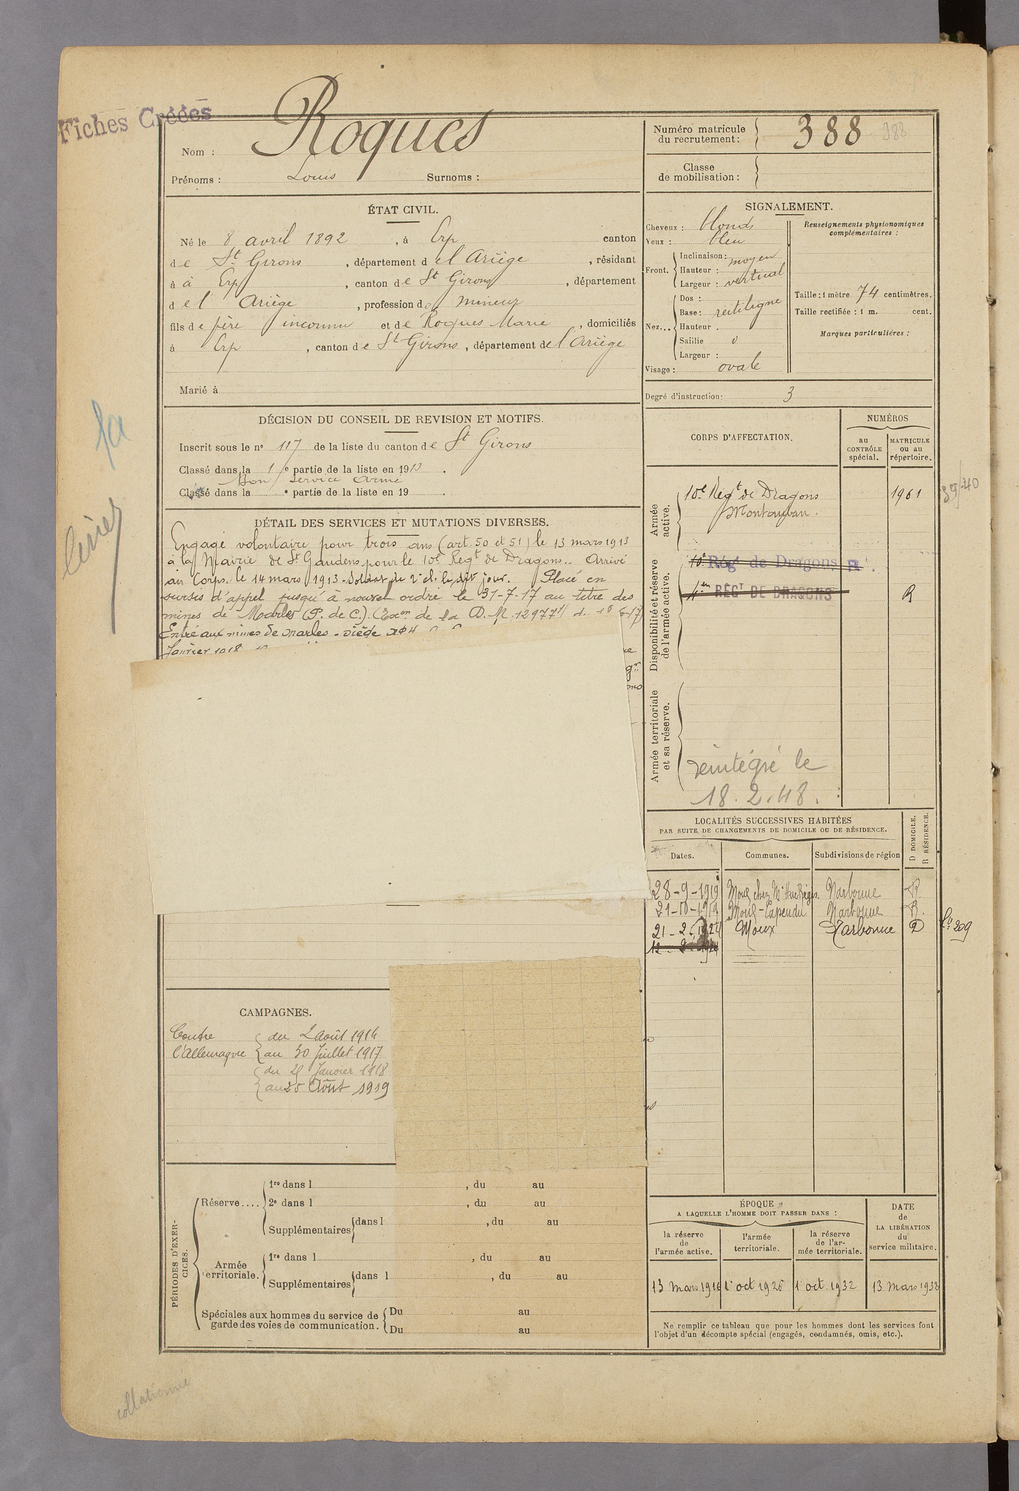 Fiches Créées
Nom : Roques
Prénoms : Louis Surnoms :
Numéro matricule du recrutement : 388 388
Classe de mobilisation :
ÉTAT CIVIL.
Né le 8 avril 1892, à Erp canton
de St Girons, département de l'Ariège, résidant
à à Erp, canton de St Girons, département
de l'Ariège, profession de mineur
fils de père inconnu et de Roques Marie, domiciliés
à Erp, canton de St Girons, département de l'Ariège
Marié à
SIGNALEMENT.
Cheveux : blonds
Yeux : bleu
Front. Inclinaison : moyen
Hauteur :
Largeur : vertical
Nez... Dos :
Base : rectiligne
Hauteur :
Saillie
Largeur :
Visage : ovale
Renseignements physionomiques complémentaires :
Taille : 1 mètre 74 centimètres.
Taille rectifiée : 1 m. cent.
Marques particulières :
Degré d'instruction : 3
DÉCISION DU CONSEIL DE REVISION ET MOTIFS.
Inscrit sous le no 117 de la liste du canton de St Girons
Classé dans la 1re partie de la liste en 1913.
Bon Service Armé
Classé dans la e partie de la liste en 19 .
DÉTAIL DES SERVICES ET MUTATIONS DIVERSES.
Engagé volontaire pour trois ans (art. 50 et 51) le 13 mars 1913
à la Mairie de St Gaudens pour le 10e Régt de Dragons.. Arrivé
au Corps le 14 mars 1913. Soldat de 2e cl. le dit jour. Placé en
sursis d'appel jusqu'à nouvel ordre le 31-7-17 au titre des
mines de Marles (P. de C.)
Entré aux mines de Marles - siège
Janvier 1918
CORPS D'AFFECTATION.
NUMÉROS
au CONTRÔLE spécial.
MATRICULE ou au répertoire.
Armée active.
10e Régt de Dragons 1961
Montauban.
39/40
Disponibilité et réserve de l'armée active.
10e Régt de Dragons R
RÉGT DE DRAGONS R
Armée territoriale et sa réserve.
réintégré le
18.2.48.
LOCALITÉS SUCCESSIVES HABITÉES
PAR SUITE DE CHANGEMENTS DE DOMICILE OU DE RÉSIDENCE.
Dates. Communes. Subdivisions de région D DOMICILE. R RÉSIDENCE.
28-9-1919 Narbonne R
21-10-1919 Moux-Capendu Narbonne R.
21-2-1924 Moux Narbonne D
CAMPAGNES.
Contre l'Allemagne
du 2 Août 1914
au 30 Juillet 1917
du 21 Janvier 1918
au 25 Août 1919
PÉRIODES D'EXERCICES.
Réserve.... 1re dans l , du au
2e dans l , du au
Supplémentaires dans l , du au
Armée territoriale. 1re dans l , du au
Supplémentaires dans l , du au
Spéciales aux hommes du service de garde des voies de communication. Du au
Du au
ÉPOQUE
A LAQUELLE L'HOMME DOIT PASSER DANS :
la réserve de l'armée active.
l'armée territoriale.
la réserve de l'armée territoriale.
DATE de LA LIBÉRATION du service militaire.
13 mars 1916 1er oct 1926 1 oct. 1932 13 mars 1938
Ne remplir ce tableau que pour les hommes dont les services font
l'objet d'un décompte spécial (engagés, condamnés, omis, etc.).
collationné